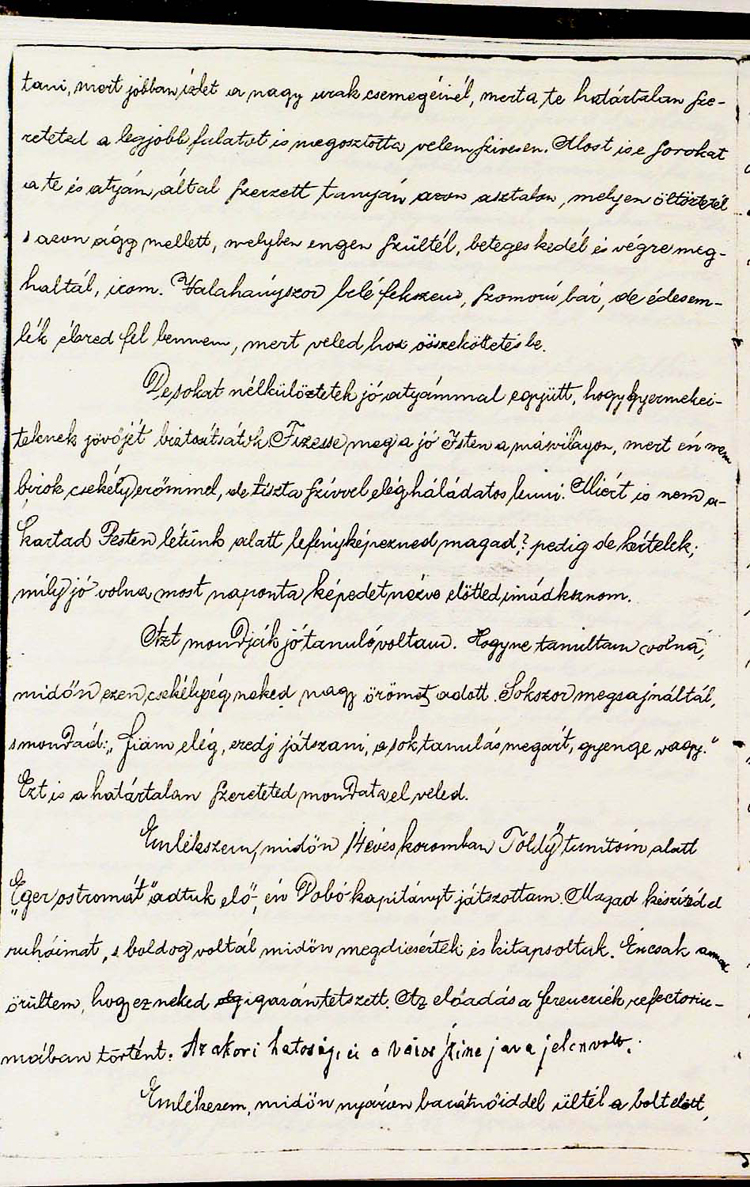 tani, mert jobban izlet a nagy urak csemegéinél, mert a te határtalan sze-
reteted a legjobb falatot is megosztotta velem szivesen. Most is e sorokat
a te és atyán által szerzett tanyán azon asztalon, melyen öltöztetél
s azon ágy mellett, melyben engen szültél, betegeskedél és végre meg-
haltál, irom. Valahányszor belé fekszem, szomorú bár, de édes em-
lék ébred fel bennem, mert veled hoz összeköttetésbe.
De sokat nélkülöztetek jó atyámmal együtt, hogy gyermekei-
teknek jövőjét biztositsátok. Fizesse meg a jó Isten a másvilágon, mert én nem
birok csekély erőmmel, de tiszta szívvel elég háládatos lenni. Miért is nem a-
kartad Pesten létünk alatt lefényképezned magad? pedig de kértelek;
mily jó volna most naponta képedet nézve előtted imádkoznom.
Azt mondják jó tanuló voltam. Hogyne tanultam volna,
midőn ezen csekélység neked nagy örömet adott. Sokszor megsajnáltál,
s mondád: „fiam elég, eredj játszani, a sok tanulás megárt, gyenge vagy."
Ezt is a határtalan szereteted mondatá el veled.
Emlékszem, midőn 14 éves koromban Toldy tanitóm alatt
„Eger ostromát" adtuk elő, én Dobó kapitányt játszottam. Magad készitéd
ruháimat, s boldog voltál midőn megdicsértek és kitapsoltak. Én csak annak
örültem, hogy ez neked igazán tetszett. Az előadás a ferencziek refectoriu-
mában történt. Az akori hatóság, és a város szine java jelen volt.
Emlékezem, midőn nyáron barátnőiddel ültél a bolt előtt,